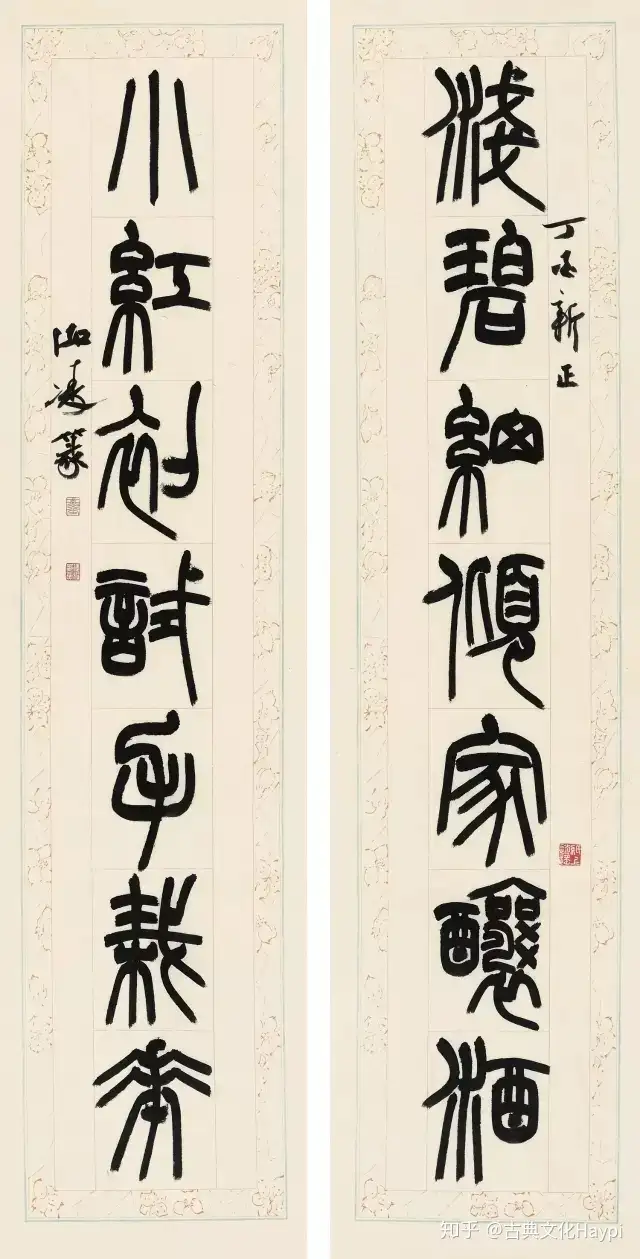 淺碧細傾家釀酒
丁酉新正
小紅初試手栽花
篆
知乎 @古典文化Haypi